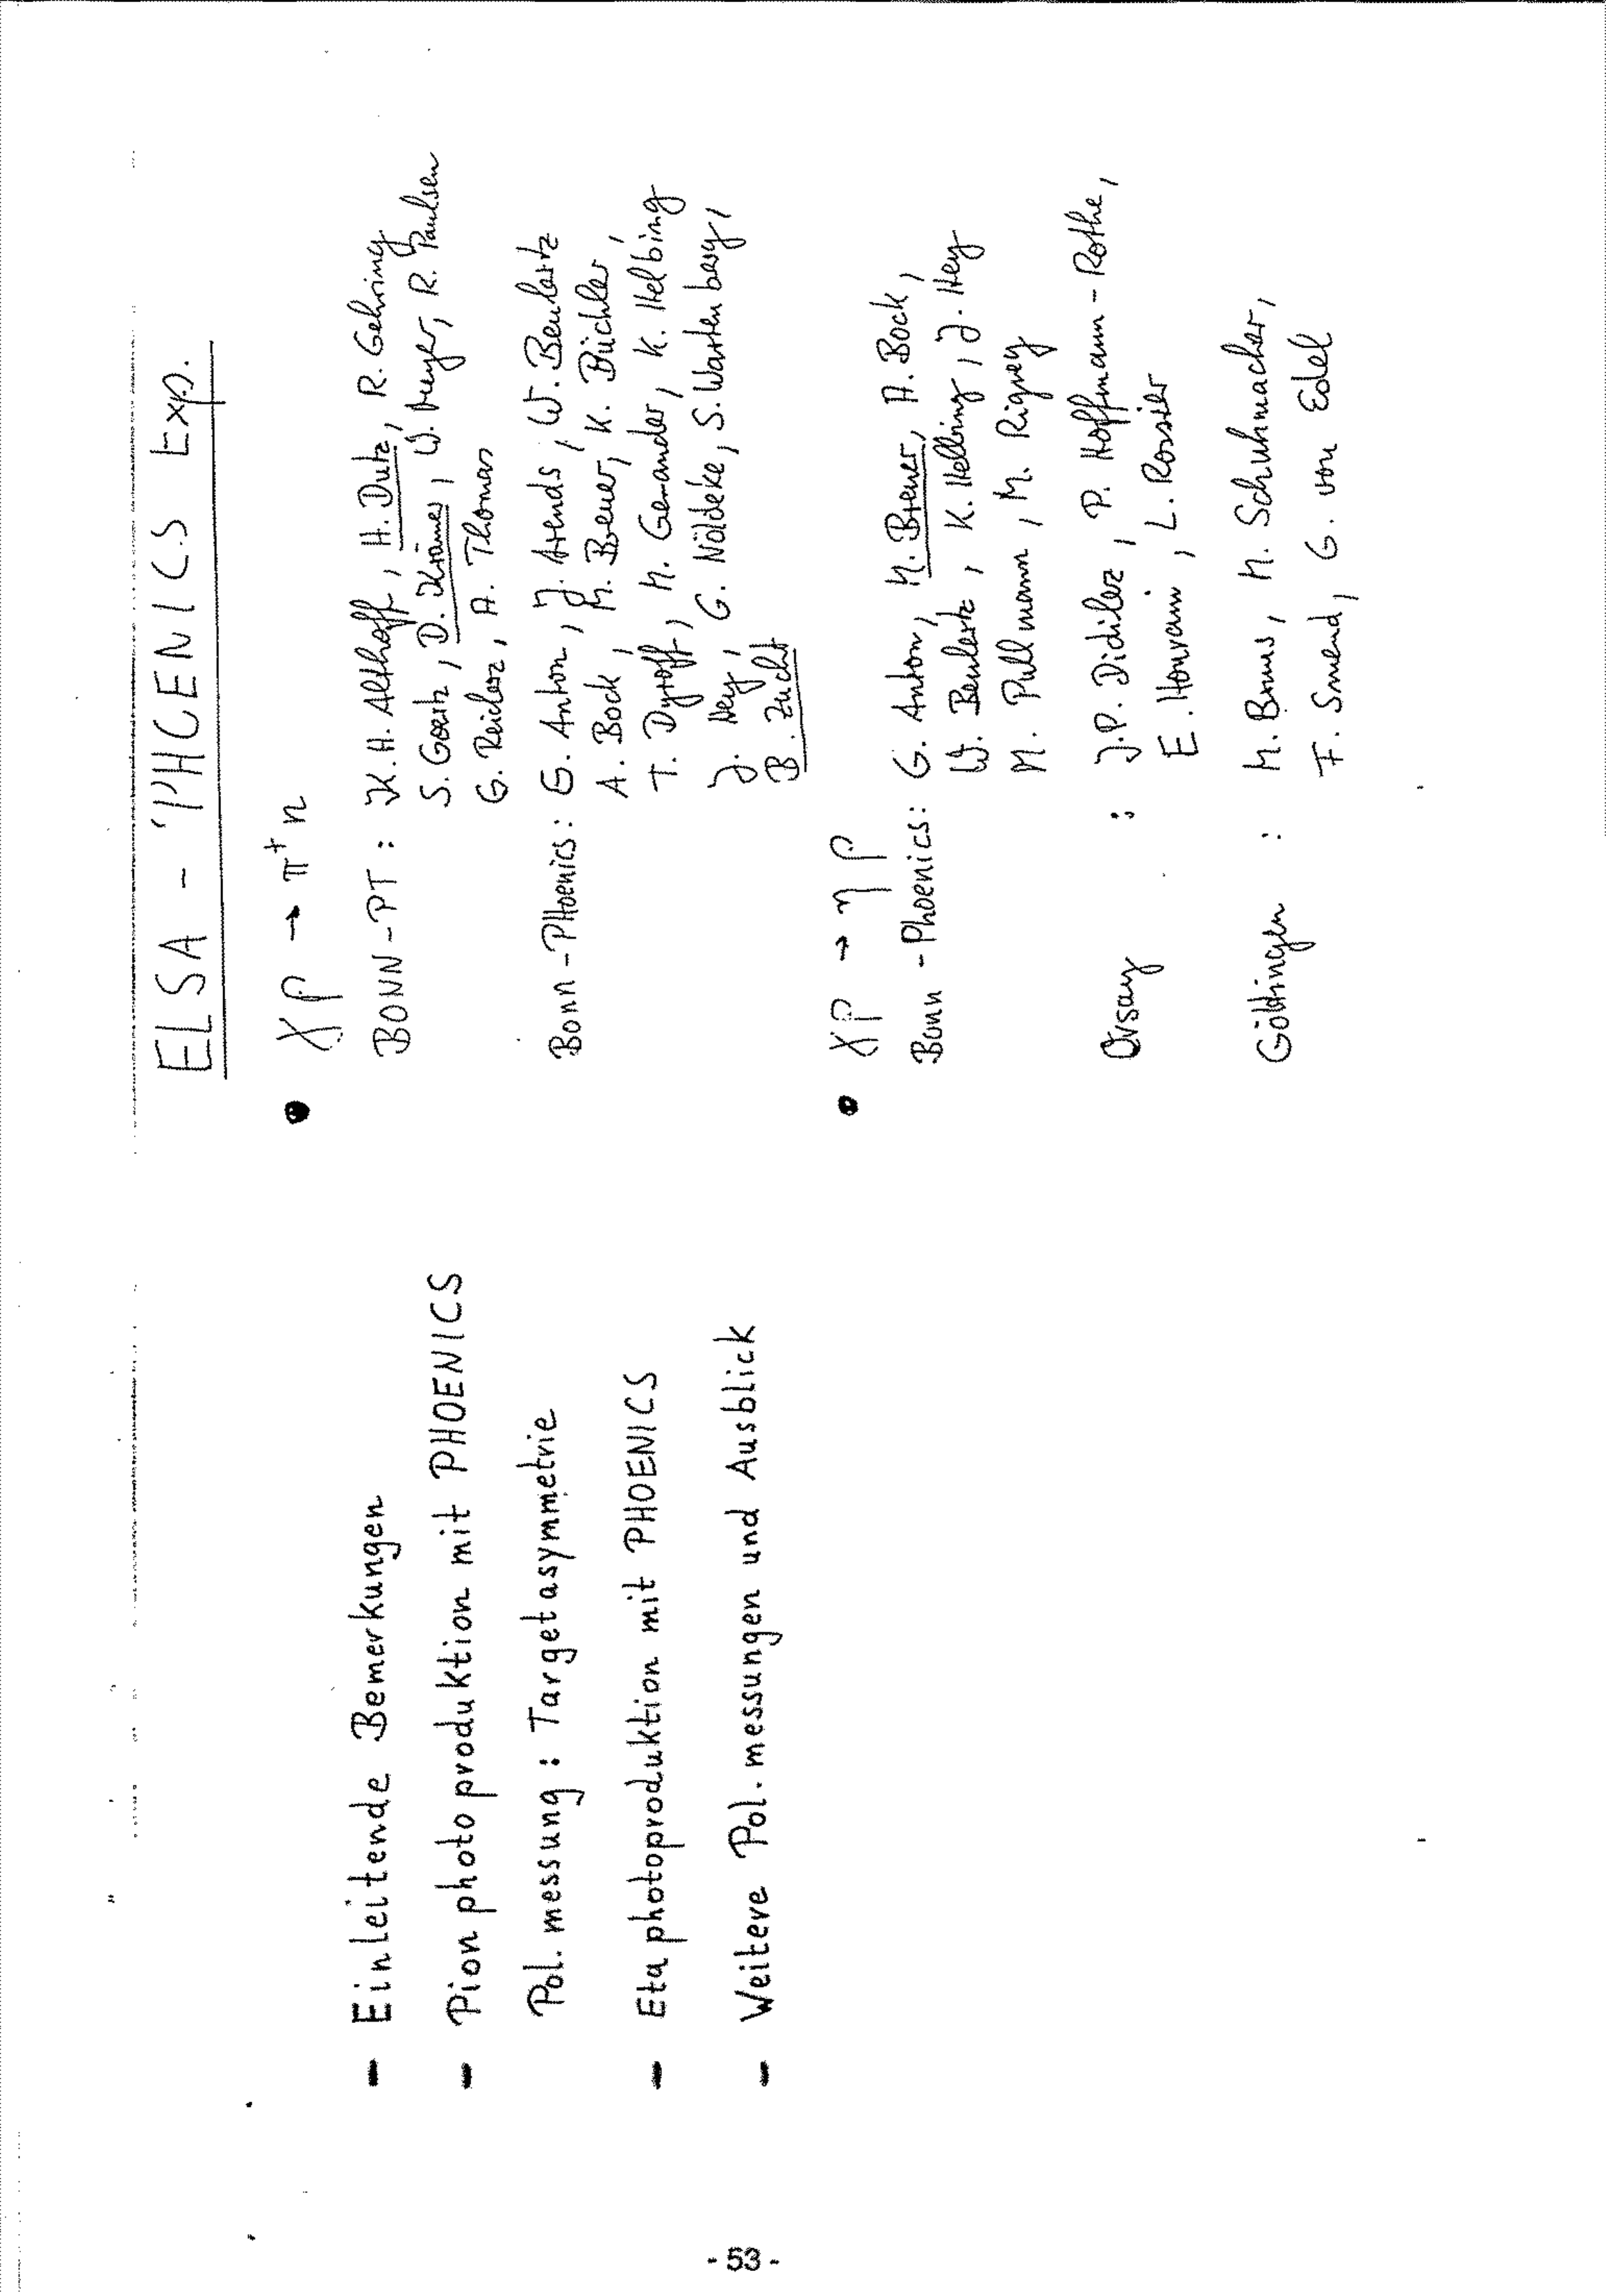 - Einleitende Bemerkungen
- Pionphotoproduktion mit PHOENICS
Pol. messung : Targetasymmetrie
- Etaphotoproduktion mit PHOENICS
- Weitere Pol. messungen und Ausblick
ELSA - PHOENICS Exp.
• γp → π⁺n
BONN-PT : K.H. Althoff, H. Dutz, R. Gehring
S. Goertz, D. Krämer, W. Meyer, R. Paulsen
G. Reicherz, A. Thomas
Bonn-PHoenics: G. Anton, J. Arends, W. Beulertz
A. Bock, M. Breuer, K. Büchler,
T. Dyroff, M. Gerander, K. Helbing
J. Hey, G. Nöldeke, S. Wartenberg,
B. Zucht
• γp → ηp
Bonn-Phoenics: G. Anton, M. Breuer, A. Bock,
W. Beulertz, K. Helbing, J. Hey
M. Pullmann, M. Rigney
Orsay : J.P. Didilez, P. Hoffmann-Rothe,
E. Hourani, L. Rosier
Göttingen : M. Schuhmacher,
F. Smend, G. von Edel
- 53 -